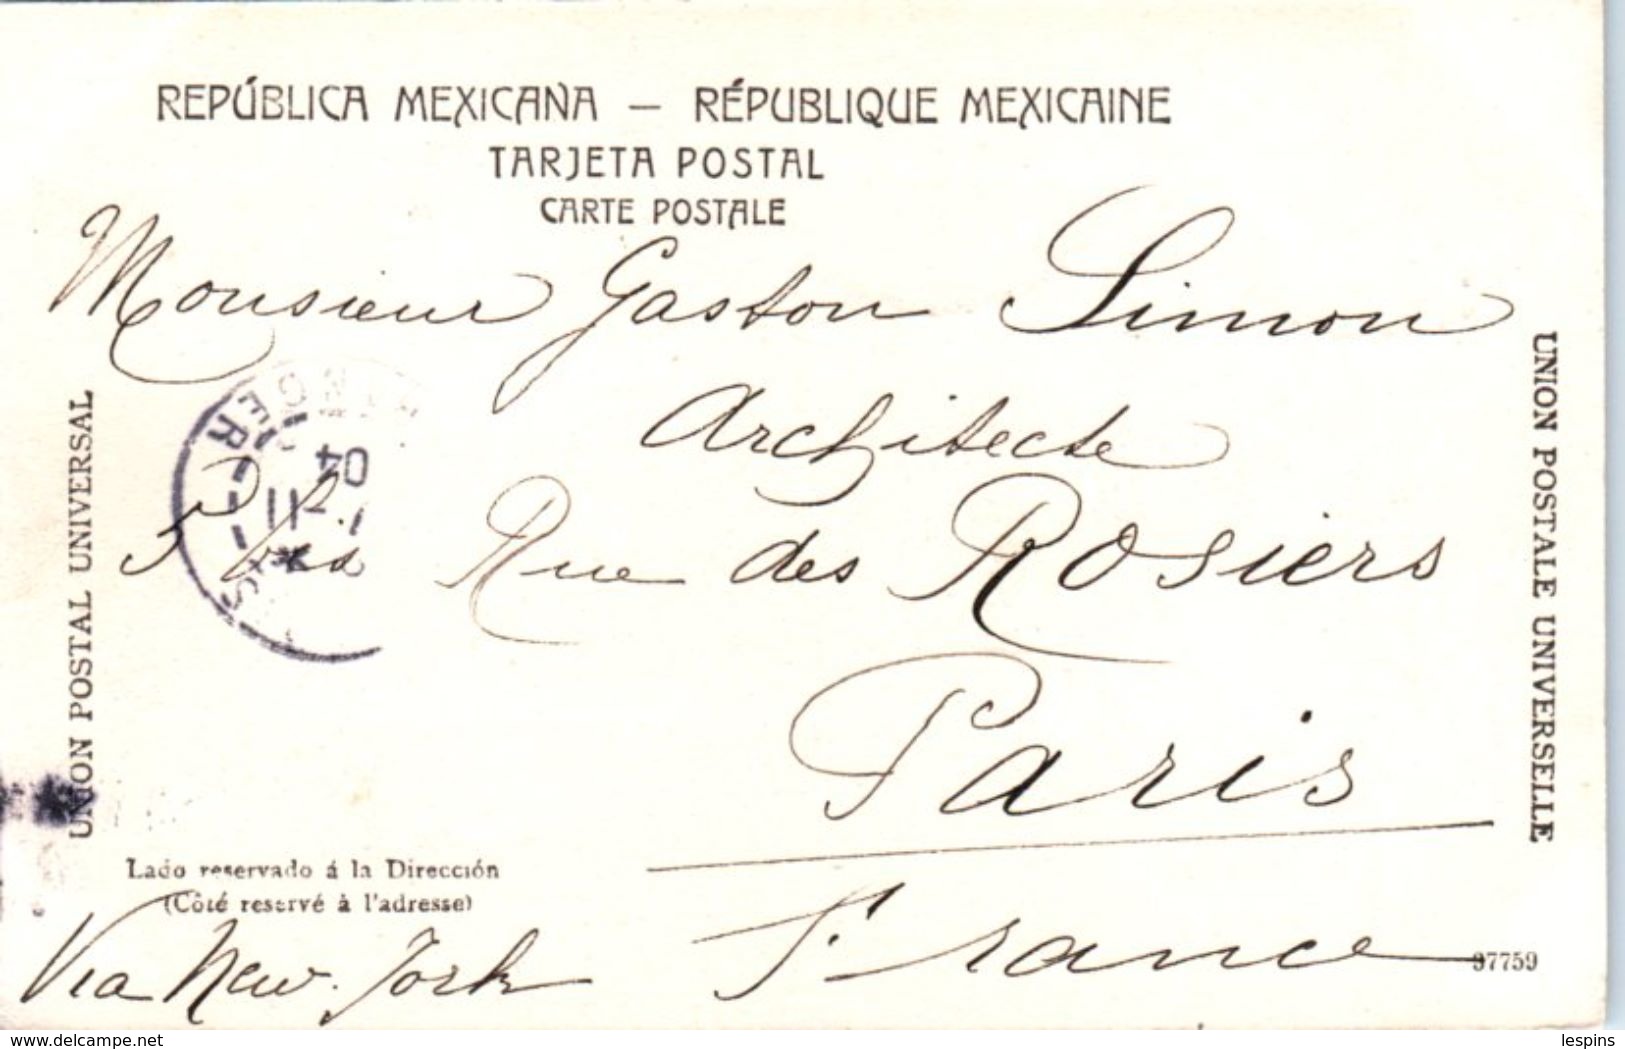 REPÚBLICA MEXICANA — RÉPUBLIQUE MEXICAINE
TARJETA POSTAL
CARTE POSTALE
Monsieur Gaston Simon
Architecte
Rue des Rosiers
Paris
France
Via New-York
UNION POSTAL UNIVERSAL
UNION POSTALE UNIVERSELLE
Lado reservado á la Dirección
(Côté reservé à l'adresse)
37759
04
11
delcampe.net
lespins